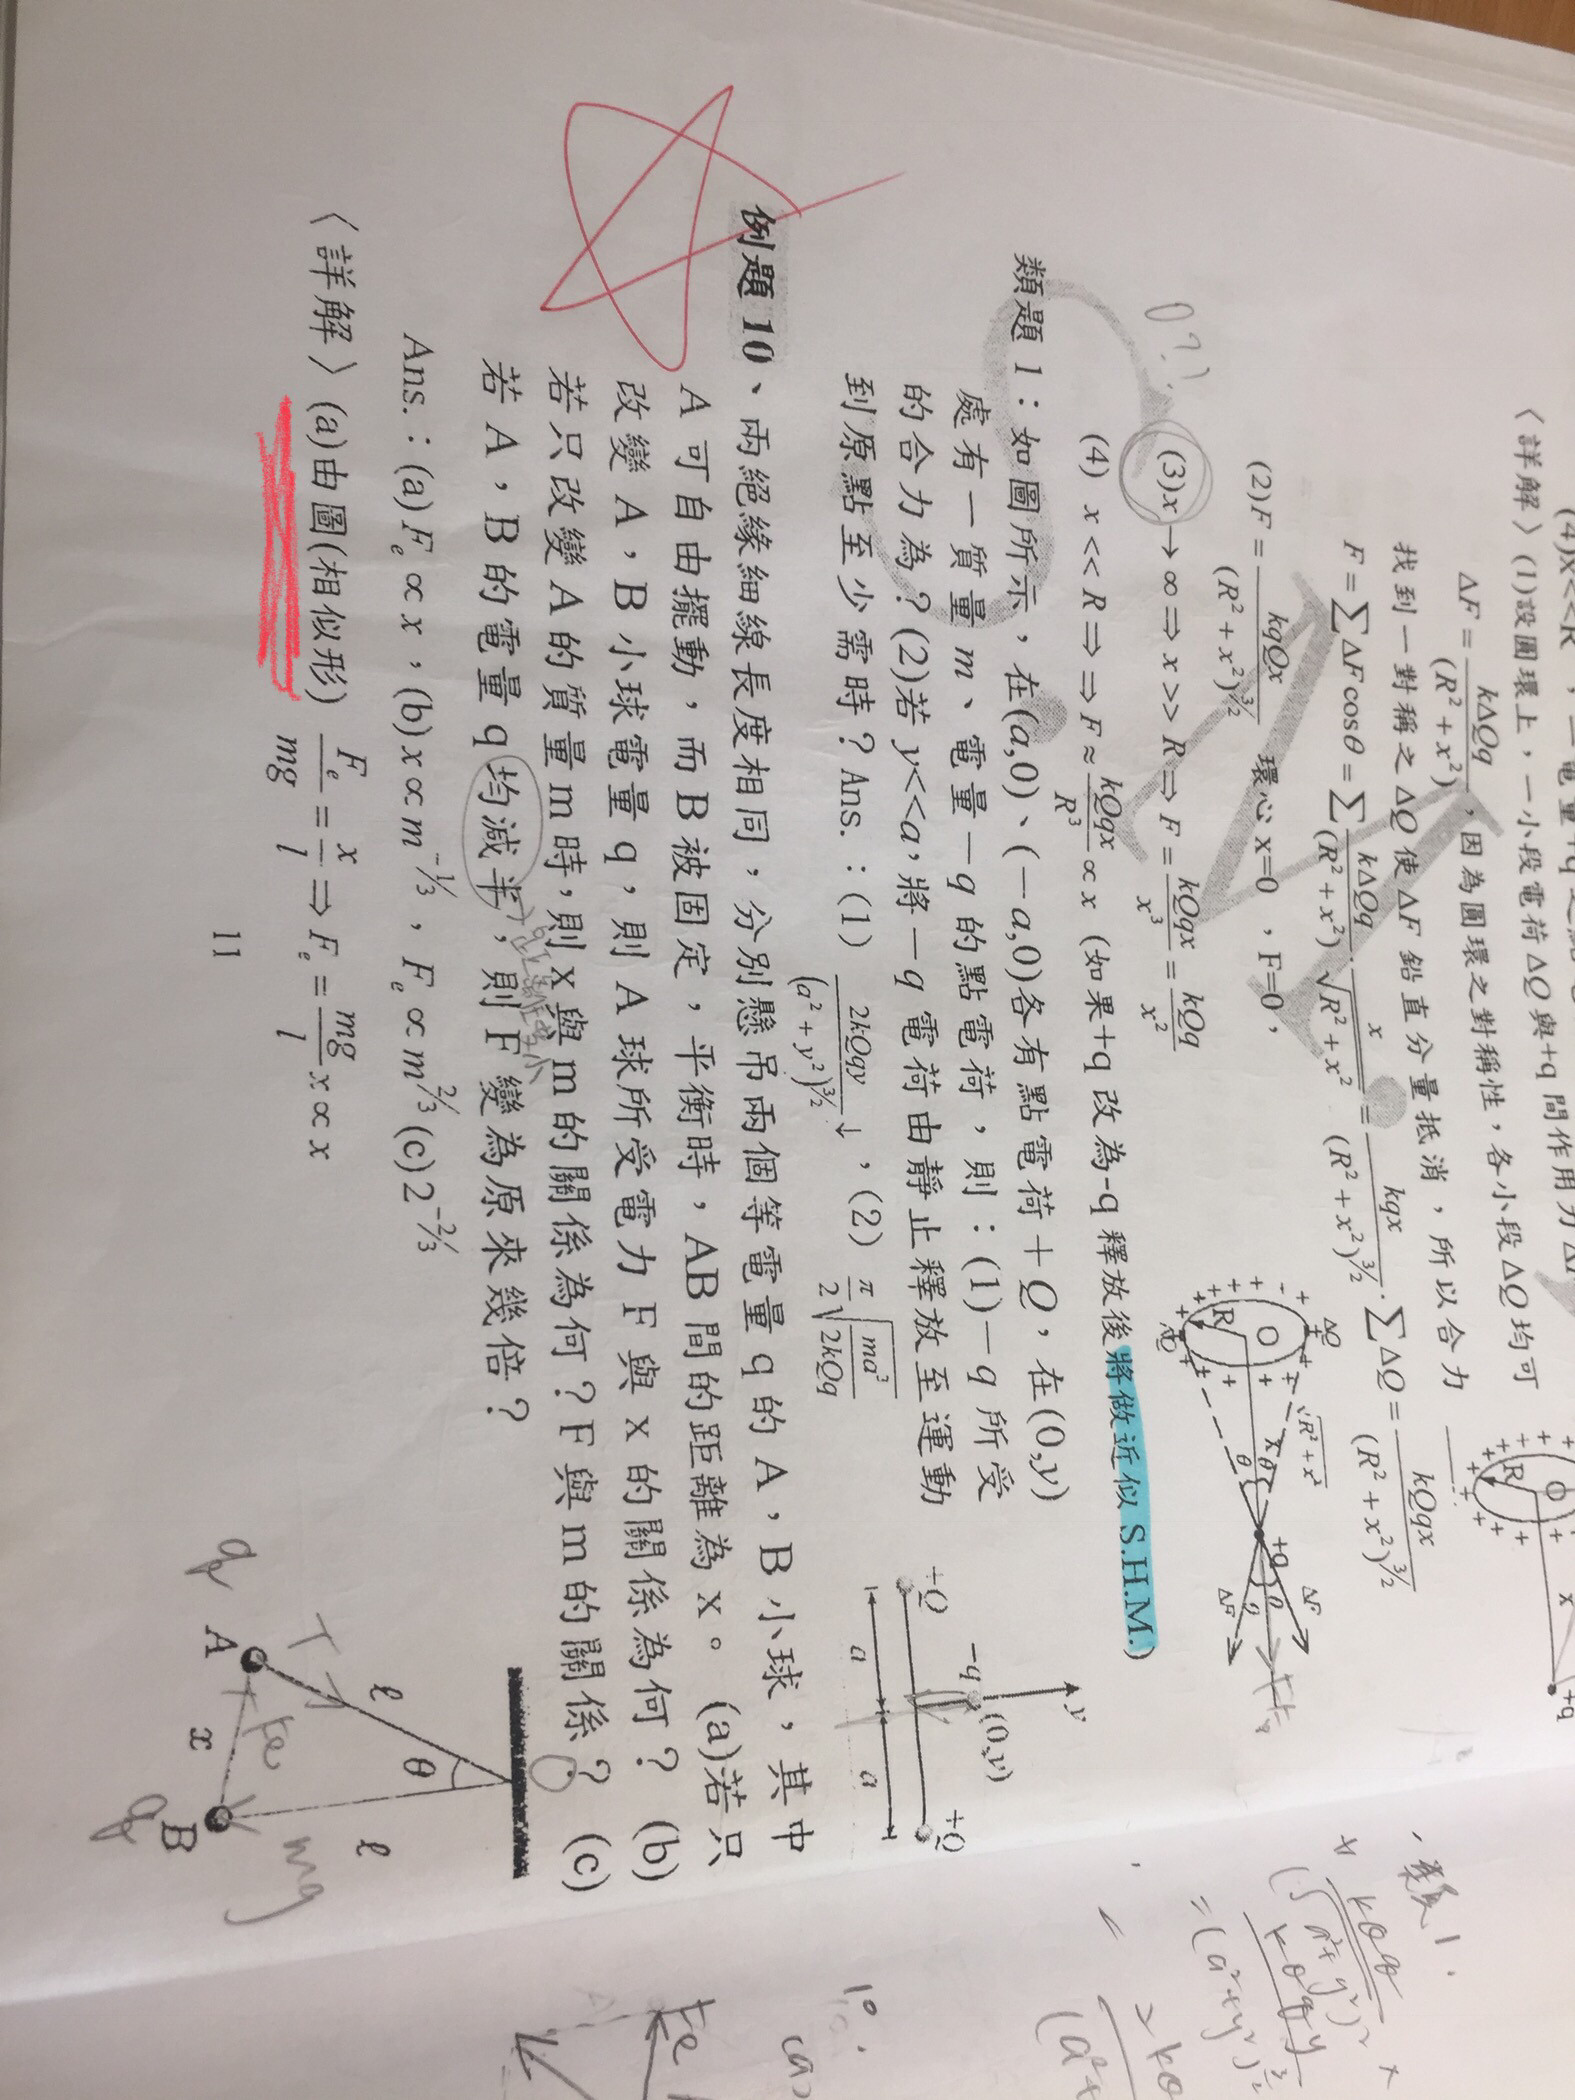 〈詳解〉(1)設圓環上，一小段電荷ΔQ與+q間作用力
ΔF = kΔQq/(R²+x²)，因為圓環之對稱性，各小段ΔQ均可
找到一對稱之ΔQ使ΔF鉛直分量抵消，所以合力
F = ∑ΔF cosθ = ∑ kΔQq/(R²+x²) · x/√(R²+x²) = kqx/(R²+x²)^(3/2) · ∑ΔQ = kQqx/(R²+x²)^(3/2)
(2)F = kqQx/(R²+x²)^(3/2) 環心 x=0 ，F=0，
(3)x→∞⇒x>>R⇒F = kQqx/x³ = kQq/x²
(4) x<<R⇒⇒F≈ kQqx/R³ ∝x (如果+q改為-q釋放後將做近似S.H.M.)
ΔQ
R
ΔQ
√R²+x²
x
θ
θ
+q
ΔF
ΔF
R
x
+q
類題1：如圖所示，在(a,0)、(－a,0)各有點電荷＋Q，在(0,y)
處有一質量m、電量－q的點電荷，則：(1)－q所受
的合力為？(2)若y<<a，將－q電荷由靜止釋放至運動
到原點至少需時？Ans.：(1) 2kQqy/(a²+y²)^(3/2) ↓，(2) π/2 √(ma³/2kQq)
y
-q
(0,y)
+Q
+Q
a
a
例題10、兩絕緣細線長度相同，分別懸吊兩個等電量q的A，B小球，其中
A可自由擺動，而B被固定，平衡時，AB間的距離為x。 (a)若只
改變A，B小球電量q，則A球所受電力F與x的關係為何？ (b)
若只改變A的質量m時，則x與m的關係為何？F與m的關係？ (c)
若A，B的電量q均減半，則F變為原來幾倍？
Ans.：(a)Fₑ∝x，(b)x∝m^(-1/3)，Fₑ∝m^(2/3) (c)2^(-2/3)
〈詳解〉(a)由圖(相似形) Fₑ/mg = x/l ⇒ Fₑ = mg/l x∝x
θ
ℓ
ℓ
A
B
x
T
Fe
mg
q
q
11
類1.
Fe